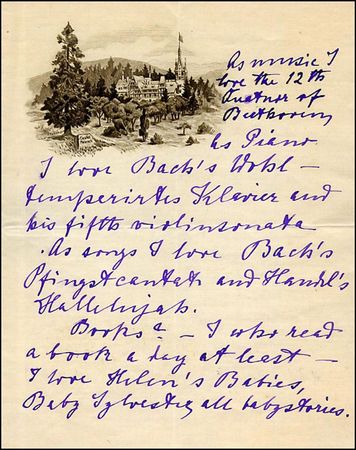 As music I
love the 12th
Quatuor of
Beethoven,
as Piano
I love Bach's Wohl—
temperirtes Klavier and
his fifth violinsonata
. As songs I love Bach's
Pfingstcantate and Handel's
Hallelujah.
Books? — I who read
a book a day at least —
I love Helen's Babies,
Baby Sylvester, all babystories.